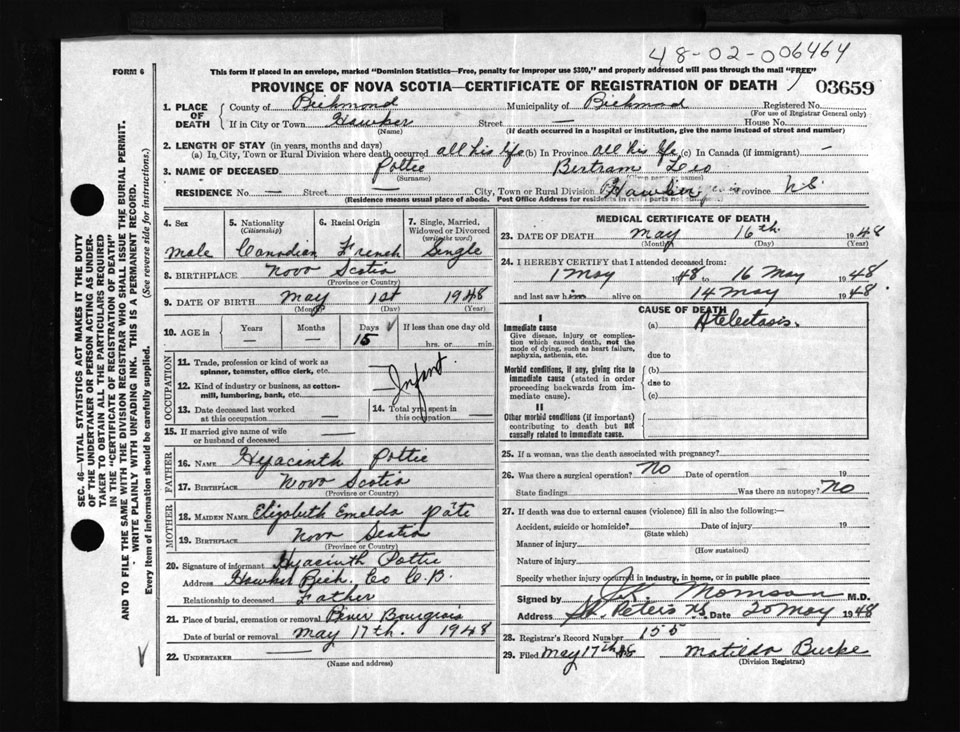 48-02-006464
FORM 6
This form if placed in an envelope, marked "Dominion Statistics—Free, penalty for improper use $300," and properly addressed will pass through the mail "FREE"
PROVINCE OF NOVA SCOTIA—CERTIFICATE OF REGISTRATION OF DEATH 03659
1. PLACE OF DEATH
County of Richmond Municipality of Richmond Registered No.
(For use of Registrar General only)
If in City or Town Hawker Street — House No.
(Name) (If death occurred in a hospital or institution, give the name instead of street and number)
2. LENGTH OF STAY (in years, months and days)
(a) In City, Town or Rural Division where death occurred all his life (b) In Province all his life (c) In Canada (if immigrant) —
3. NAME OF DECEASED Pottie Bertram Leo
(Surname)
RESIDENCE No. — Street — City, Town or Rural Division Hawker Province N.S.
(Residence means usual place of abode. Post Office Address for residents in rural parts not sufficient.)
4. Sex Male
5. Nationality (Citizenship) Canadian
6. Racial Origin French
7. Single, Married, Widowed or Divorced (write the word) Single
8. BIRTHPLACE Nova Scotia
(Province or Country)
9. DATE OF BIRTH May 1st 1948
(Month) (Day) (Year)
10. AGE in Years — Months — Days 15 If less than one day
hrs. or min.
OCCUPATION
11. Trade, profession or kind of work as spinner, teamster, office clerk, etc. —
12. Kind of industry or business, as cotton-mill, lumbering, bank, etc. — Infant
13. Date deceased last worked at this occupation —
14. Total yrs. spent in this occupation —
15. If married give name of wife or husband of deceased —
FATHER
16. NAME Hyacinth Pottie
17. BIRTHPLACE Nova Scotia
(Province or Country)
MOTHER
18. MAIDEN NAME Elizabeth Emelda Pâté
19. BIRTHPLACE Nova Scotia
(Province or Country)
20. Signature of informant Hyacinth Pottie
Address Hawker Rich. Co C.B.
Relationship to deceased Father
21. Place of burial, cremation or removal River Bourgeois
Date of burial or removal May 17th. 1948
22. UNDERTAKER —
(Name and address)
MEDICAL CERTIFICATE OF DEATH
23. DATE OF DEATH May 16th. 1948
(Month) (Day) (Year)
24. I HEREBY CERTIFY that I attended deceased from:
1 May 1948 to 16 May 1948
and last saw him alive on 14 May 1948.
CAUSE OF DEATH
I
Immediate cause (a) Atelectasis.
Give disease, injury or complication which caused death, not the mode of dying, such as heart failure, asphyxia, asthenia, etc.
due to
Morbid conditions, if any, giving rise to immediate cause (stated in order proceeding backwards from immediate cause).
(b)
due to
(c)
II
Other morbid conditions (if important) contributing to death but not causally related to immediate cause.
25. If a woman, was the death associated with pregnancy?
26. Was there a surgical operation? No Date of operation 19
State findings Was there an autopsy? No
27. If death was due to external causes (violence) fill in also the following:—
Accident, suicide or homicide? Date of injury 19
(State which)
Manner of injury
(How sustained)
Nature of injury
Specify whether injury occurred in industry, in home, or in public place
Signed by Morrison M.D.
Address St. Peters N.S. Date 20 May 1948
28. Registrar's Record Number 155
29. Filed May 17th 48 Matilda Burke
(Division Registrar)
SEC. 46—VITAL STATISTICS ACT MAKES IT THE DUTY
OF THE UNDERTAKER OR PERSON ACTING AS UNDER-
TAKER TO OBTAIN ALL THE PARTICULARS REQUIRED
IN THE "CERTIFICATE OF REGISTRATION OF DEATH"
AND TO FILE THE SAME WITH THE DIVISION REGISTRAR WHO SHALL ISSUE THE BURIAL PERMIT.
WRITE PLAINLY WITH UNFADING INK. THIS IS A PERMANENT RECORD.
Every item of information should be carefully supplied. (See reverse side for instructions.)